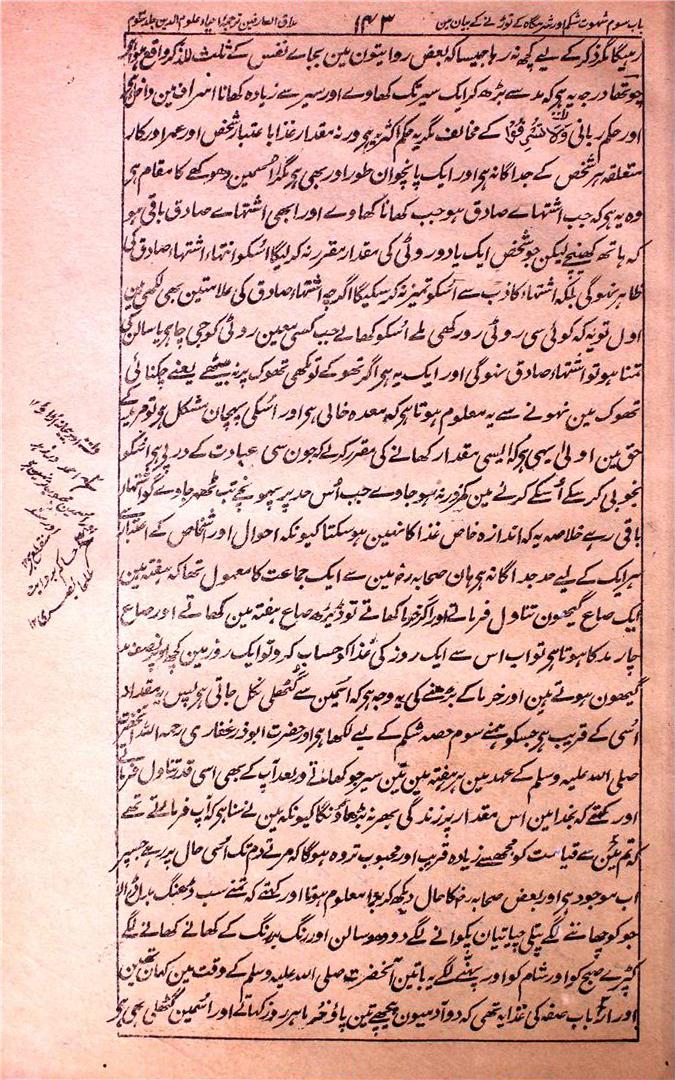 باب سوم شہوت شکم اور شرمگاہ کے توڑنے کے بیان مین ۱۴۳ مذاق العارفین ترجمہ احیاء علوم الدین جلد سوم
رہیگا مگر ذکر کے لیے کچھ نہ رہا جیسا کہ بعض روایتون مین بجاے نفس کے ثلث للذکر واقع ہوا ہی
چوتھا درجہ یہ ہی کہ مد سے بڑھ کر ایک سیر تک کھاوے اور سیر سے زیادہ کھانا اسراف مین داخل ہی
اور حکم ربانی وَلَا تُسْرِفُوْا کے مخالف مگر یہ حکم اکثریہ ہی ورنہ مقدار غذا باعتبار شخص اور عمر اور کار
متعلقہ ہر شخص کے جداگانہ ہی اور ایک پانچوان طور اور بھی ہی مگر اسمین دھوکھے کا مقام ہی
وہ یہ ہی کہ جب اشتہاے صادق ہو جب کھانا کھاوے اور ابھی اشتہاے صادق باقی ہو
کہ ہاتھ کھینچے لیکن جو شخص ایک یا دو روٹی کی مقدار مقرر نہ کرلیگا اُسکو انتہاء اشتہاء صادق کی
ظاہر نہوگی بلکہ اشتہاء کاذب سے اُسکو تمیز نہ کرسکیگا اگرچہ اشتہاء صادق کی علامتین بھی لکھی ہین
اول تو یہ کہ کوئی سی روٹی روکھی ملے اُسکو کھالے جب کسی معین روٹی کو جی چاہے یا سالن کی
تمنا ہو تو اشتہاء صادق نہوگی اور ایک یہ ہی اگر تھوکے تو مکھی تھوک پر نہ بیٹھے یعنے چکنائی
تھوک مین نہونے سے یہ معلوم ہوتا ہی کہ معدہ خالی ہی اور اسکی پہچان مشکل ہی تو مرید کے
حق مین اولیٰ یہی ہی کہ ایسی مقدار کھانے کی مقرر کرلے کہ جون سی عبادت کے درپے ہی اُسکو
بخوبی کرسکے اُسکے کرنے مین کمزور نہ ہو جاوے جب اُس حد پر پہونچے تب ٹھہر جاوے گو اشتہاء
باقی رہے خلاصہ یہ کہ اندازہ خاص غذا کا نہین ہوسکتا کیونکہ احوال اور اشخاص کے اعتبار سے
ہر ایک کے لیے حد جداگانہ ہی ہان صحابہ رضہ مین سے ایک جماعت کا معمول تھا کہ ہفتہ مین
ایک صاع گیھون تناول فرماتے اور اگر خرما کھاتے تو ڈیڑھ صاع ہفتہ مین کھاتے اور صاع
چار مد کا ہوتا ہی تو اب اس سے ایک روز کی غذا کو حساب کرو تو ایک روز مین کچھ اوپر نصف مد
گیھون ہوتے ہین اور خرما کے بڑھنے کی یہ وجہ ہی کہ اسمین سے گٹھلی نکل جاتی ہی پس یہ مقدار
اُسی کے قریب ہی جسکو ہمنے سوم حصہ شکم کے لیے لکھا ہی اور حضرت ابوذر غفاری رحمہ اللہ آنحضرت
صلی اللہ علیہ وسلم کے عہد مین ہر ہفتہ مین تین سیر جو کھاتے اور بعد آپ کے بھی اسی قدر تناول فرماتے
اور کہتے کہ بخدا مین اس مقدار پر زندگی بھر نہ بڑھاؤنگا کیونکہ مین نے سنا ہی کہ آپ فرماتے تھے
کہ تم مین سے قیامت کو مجھسے زیادہ قریب اور محبوب تر وہ ہوگا کہ مرتے دم تک اُسی حال پر رہے جسپر
اب موجود ہی اور بعض صحابہ رضہ کا حال دیکھ کر برا معلوم ہوتا اور کہتے کہ تمنے سب ڈھنگ بدل ڈالا
جو کو چھاننے لگے پتلی چپاتیان پکوانے لگے دو دو سالن اور رنگ برنگ کے کھانے کھانے لگے
کپڑے صبح کو اور شام کو اور پہننے لگے یہ باتین آنحضرت صلی اللہ علیہ وسلم کے وقت مین کہان تھین
اور ارباب صفہ کی غذا یہ تھی کہ دو آدمیون پیچھے تین پاؤ خرما ہر روز کھاتے اور اسمین گٹھلی بھی ہی